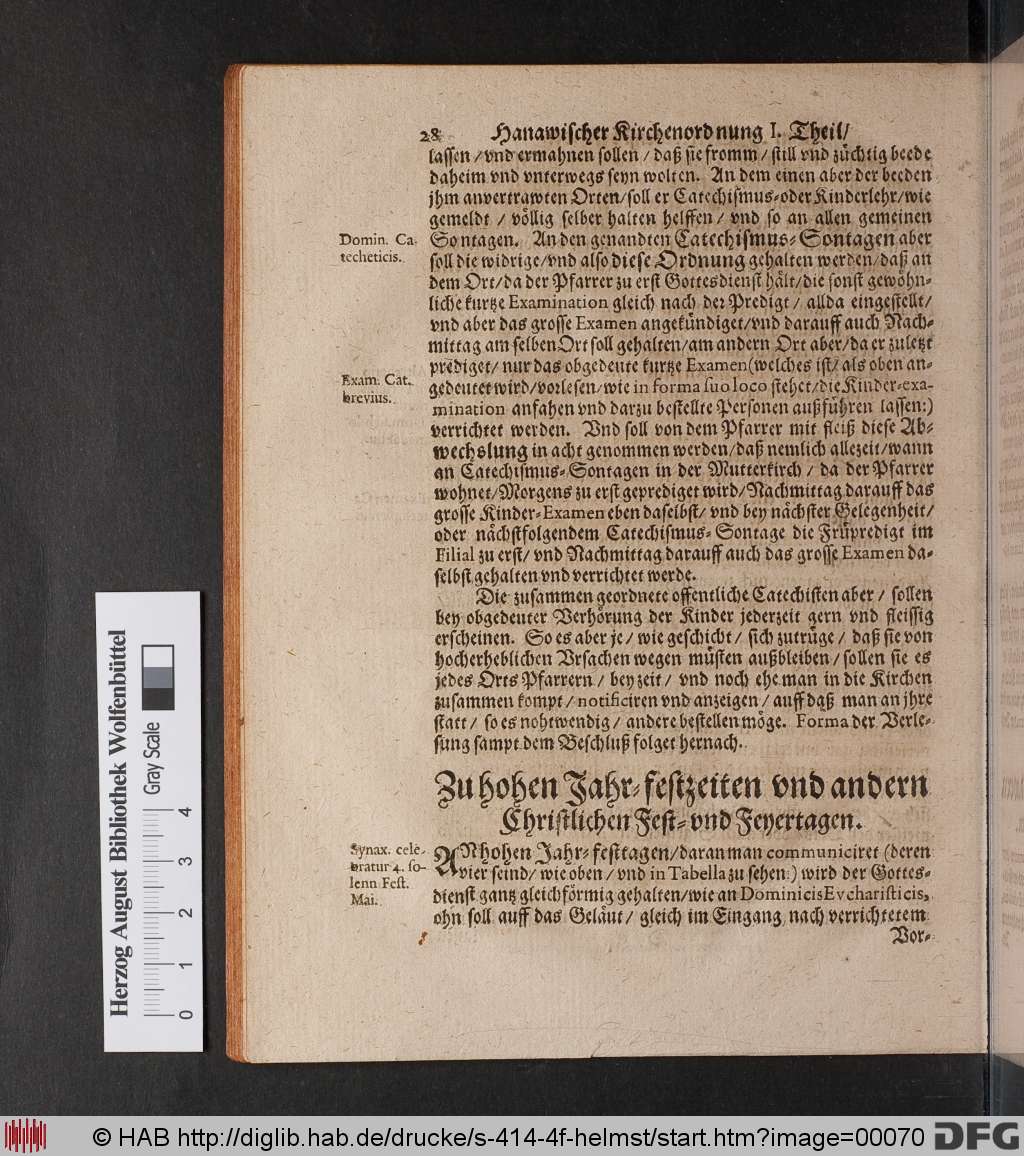 28 Hanawischer Kirchenordnung I. Theil/
lassen / vnd ermahnen sollen / daß sie fromm / still vnd züchtig beede
daheim vnd vnterwegs seyn wolten. An dem einen aber der beeden
jhm anvertrawten Orten/soll er Catechismus-oder Kinderlehr/wie
gemeldt / völlig selber halten helffen / vnd so an allen gemeinen
Domin. Ca-
techeticis.
Sontagen. An den genandten Catechismus-Sontagen aber
soll die widrige/vnd also diese Ordnung gehalten werden/daß an
dem Ort/da der Pfarrer zu erst Gottesdienst hält/die sonst gewöhn-
liche kurtze Examination gleich nach der Predigt / allda eingestellt/
vnd aber das grosse Examen angekündiget/vnd darauff auch Nach-
mittag am selben Ort soll gehalten/am andern Ort aber/da er zuletzt
prediget/ nur das obgedeute kurtze Examen (welches ist/ als oben an-
Exam. Cat.
brevius.
gedeutet wird/vorlesen/wie in forma suo loco stehet/die Kinder-exa-
mination anfahen vnd darzu bestellte Personen außführen lassen:)
verrichtet werden. Vnd soll von dem Pfarrer mit fleiß diese Ab-
wechslung in acht genommen werden/daß nemlich allezeit/wann
an Catechismus-Sontagen in der Mutterkirch / da der Pfarrer
wohnet/Morgens zu erst geprediget wird/Nachmittag darauff das
grosse Kinder-Examen eben daselbst/ vnd bey nächster Gelegenheit/
oder nächstfolgendem Catechismus-Sontage die Früpredigt im
Filial zu erst/ vnd Nachmittag darauff auch das grosse Examen da-
selbst gehalten vnd verrichtet werde.
Die zusammen geordnete offentliche Catechisten aber / sollen
bey obgedeuter Verhörung der Kinder jederzeit gern vnd fleissig
erscheinen. So es aber je / wie geschicht / sich zutrüge / daß sie von
hocherheblichen Vrsachen wegen müsten außbleiben / sollen sie es
jedes Orts Pfarrern / bey zeit / vnd noch ehe man in die Kirchen
zusammen kompt / notificiren vnd anzeigen / auff daß man an jhre
statt / so es nohtwendig / andere bestellen möge. Forma der Verle-
sung sampt dem Beschluß folget hernach.
Zu hohen Jahr-festzeiten vnd andern
Christlichen Fest-vnd Feyertagen.
Synax. cele-
bratur 4. so-
lenn Fest.
Mai.
AN hohen Jahr-festtagen/daran man communiciret (deren
vier seind/ wie oben / vnd in Tabella zu sehen:) wird der Gottes-
dienst gantz gleichförmig gehalten/wie an Dominicis Evcharisticis,
ohn soll auff das Geläut / gleich im Eingang nach verrichtetem
Vor-
Herzog August Bibliothek Wolfenbüttel
Gray Scale
0 1 2 3 4
© HAB http://diglib.hab.de/drucke/s-414-4f-helmst/start.htm?image=00070 DFG